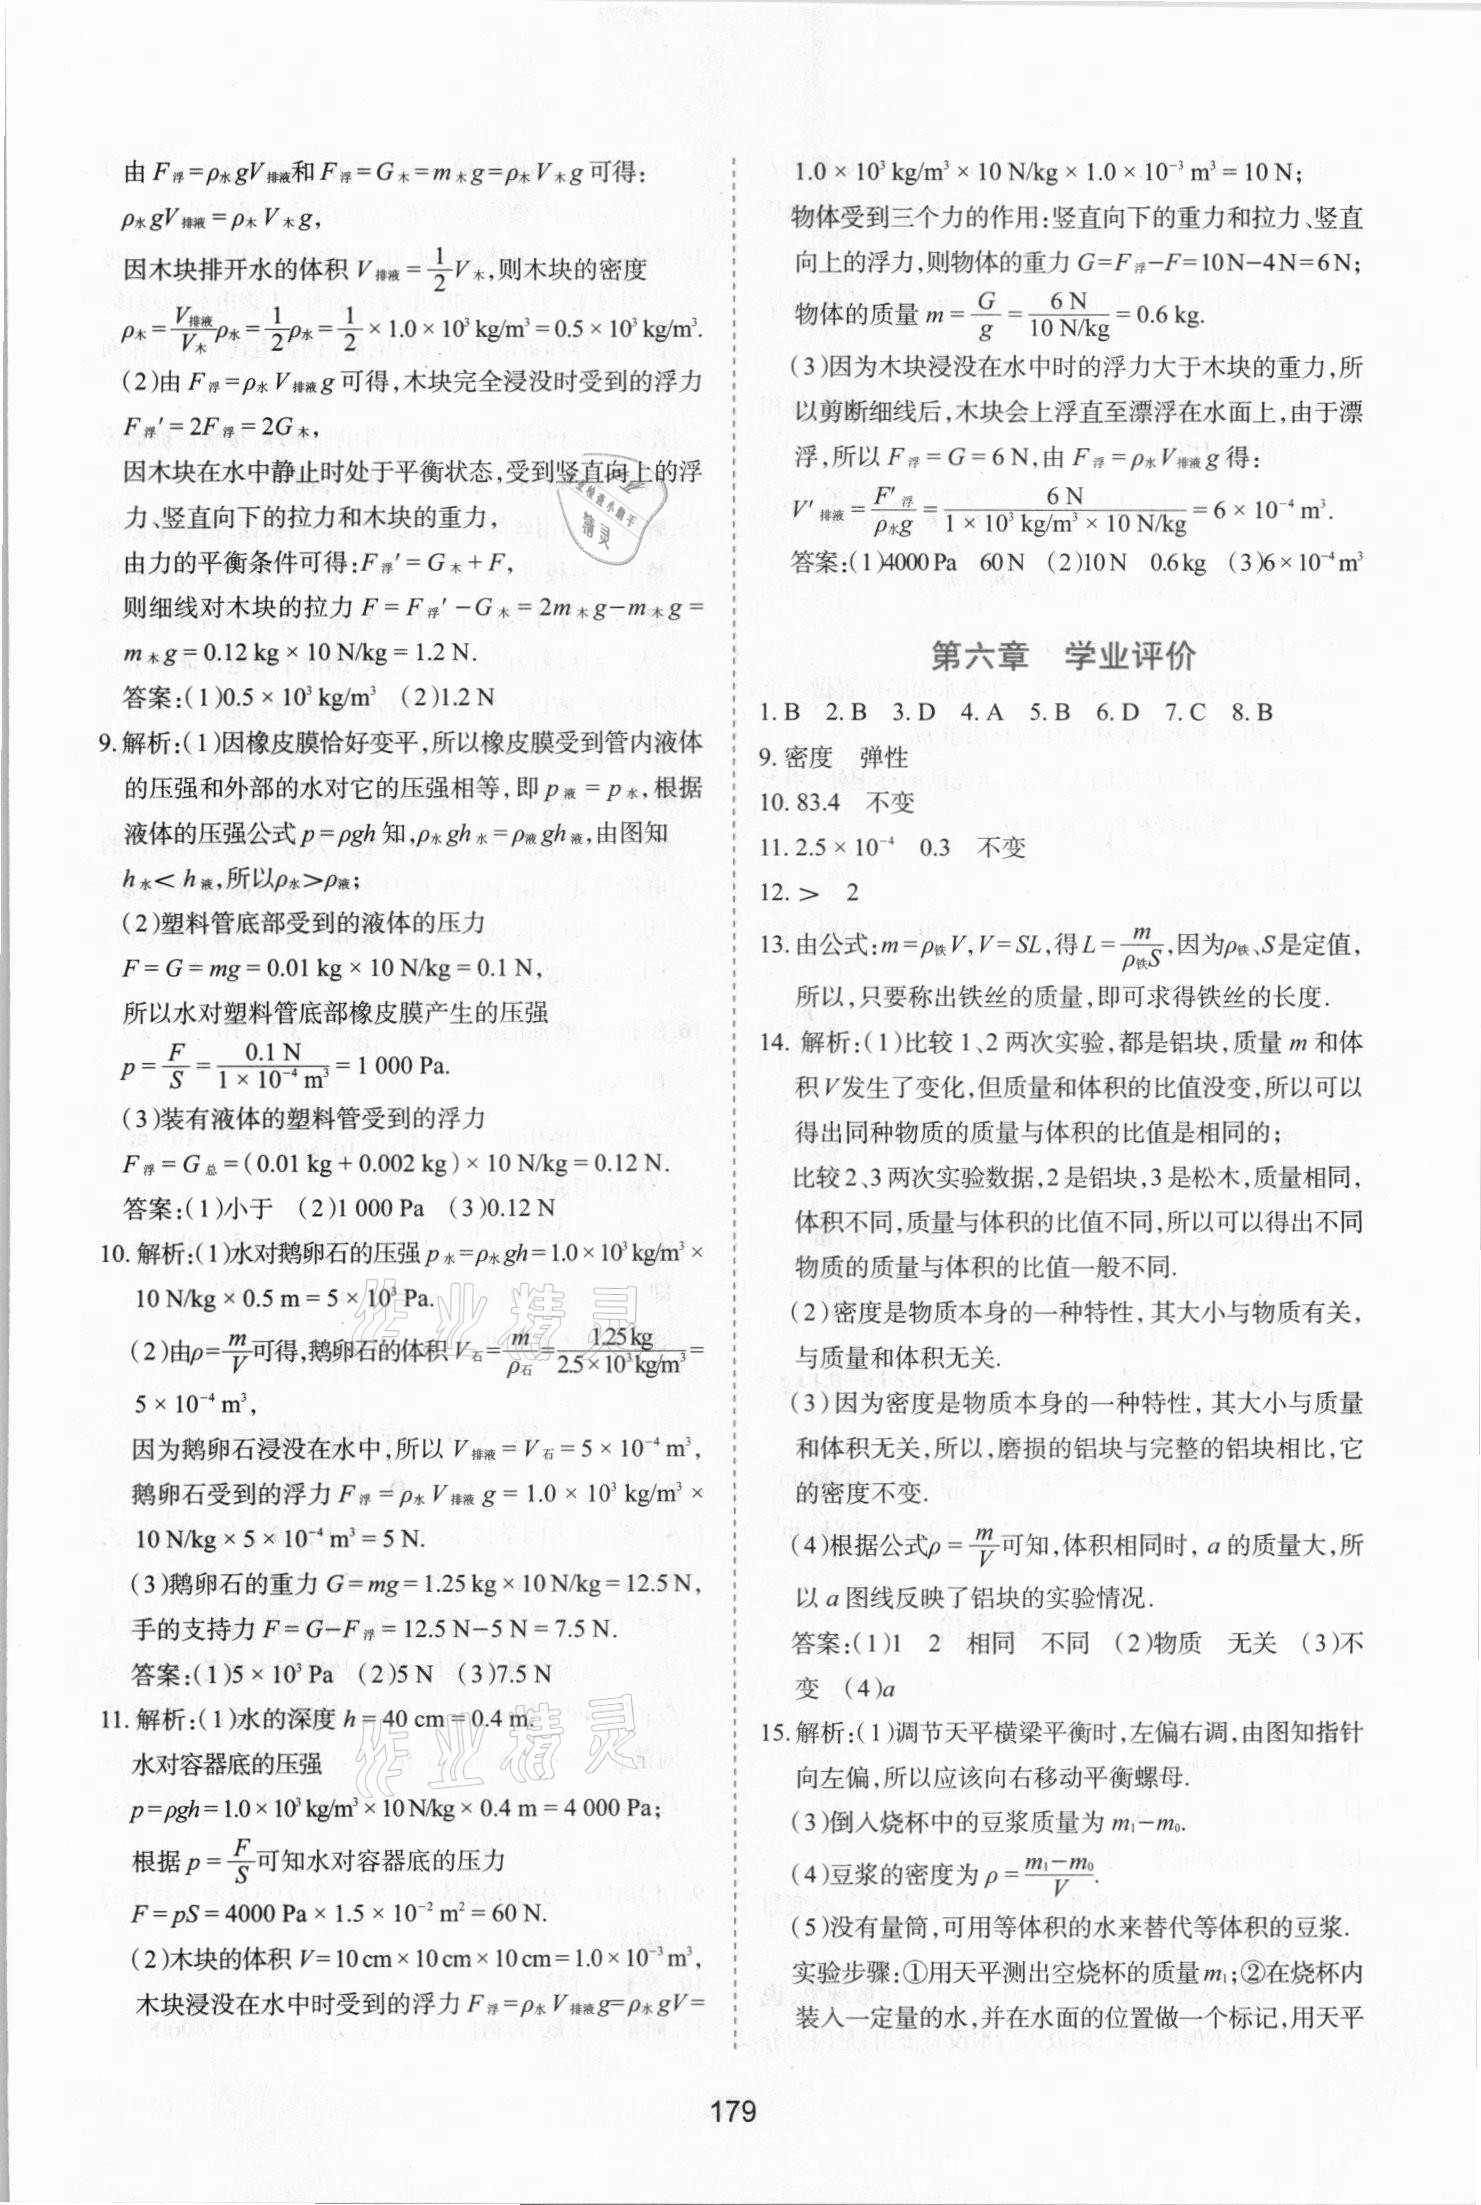 由 F浮=ρ水gV排液和 F浮=G木=m木g=ρ木V木g可得:
ρ水gV排液=ρ木V木g,
因木块排开水的体积 V排液=1/2V木,则木块的密度
ρ木=V排液/V木ρ水=1/2ρ水=1/2×1.0×10³ kg/m³=0.5×10³ kg/m³.
(2)由 F浮=ρ水V排液g可得,木块完全浸没时受到的浮力
F浮′=2F浮=2G木,
因木块在水中静止时处于平衡状态,受到竖直向上的浮
力、竖直向下的拉力和木块的重力,
由力的平衡条件可得:F浮′=G木+F,
则细线对木块的拉力 F=F浮′-G木=2m木g-m木g=
m木g=0.12 kg×10 N/kg=1.2 N.
答案:(1)0.5×10³ kg/m³ (2)1.2 N
9.解析:(1)因橡皮膜恰好变平,所以橡皮膜受到管内液体
的压强和外部的水对它的压强相等,即 p液=p水,根据
液体的压强公式 p=ρgh 知,ρ水gh水=ρ液gh液,由图知
h水<h液,所以ρ水>ρ液;
(2)塑料管底部受到的液体的压力
F=G=mg=0.01 kg×10 N/kg=0.1 N,
所以水对塑料管底部橡皮膜产生的压强
p=F/S=0.1 N/1×10⁻⁴ m³=1 000 Pa.
(3)装有液体的塑料管受到的浮力
F浮=G总=(0.01 kg+0.002 kg)×10 N/kg=0.12 N.
答案:(1)小于 (2)1 000 Pa (3)0.12 N
10.解析:(1)水对鹅卵石的压强 p水=ρ水gh=1.0×10³ kg/m³×
10 N/kg×0.5 m=5×10³ Pa.
(2)由ρ=m/V可得,鹅卵石的体积 V石=m/ρ石=1.25 kg/2.5×10³ kg/m³=
5×10⁻⁴ m³,
因为鹅卵石浸没在水中,所以 V排液=V石=5×10⁻⁴ m³,
鹅卵石受到的浮力 F浮=ρ水V排液g=1.0×10³ kg/m³×
10 N/kg×5×10⁻⁴ m³=5 N.
(3)鹅卵石的重力 G=mg=1.25 kg×10 N/kg=12.5 N,
手的支持力 F=G-F浮=12.5 N-5 N=7.5 N.
答案:(1)5×10³ Pa (2)5 N (3)7.5 N
11.解析:(1)水的深度 h=40 cm=0.4 m.
水对容器底的压强
p=ρgh=1.0×10³ kg/m³×10 N/kg×0.4 m=4 000 Pa;
根据 p=F/S可知水对容器底的压力
F=pS=4000 Pa×1.5×10⁻² m²=60 N.
(2)木块的体积 V=10 cm×10 cm×10 cm=1.0×10⁻³ m³,
木块浸没在水中时受到的浮力 F浮=ρ水V排液g=ρ水gV=
1.0×10³ kg/m³×10 N/kg×1.0×10⁻³ m³=10 N;
物体受到三个力的作用:竖直向下的重力和拉力、竖直
向上的浮力,则物体的重力 G=F浮-F=10N-4N=6N;
物体的质量 m=G/g=6 N/10 N/kg=0.6 kg.
(3)因为木块浸没在水中时的浮力大于木块的重力,所
以剪断细线后,木块会上浮直至漂浮在水面上,由于漂
浮,所以 F浮=G=6 N,由 F浮=ρ水V排液g得:
V′排液=F′浮/ρ水g=6 N/1×10³ kg/m³×10 N/kg=6×10⁻⁴ m³.
答案:(1)4000Pa 60N (2)10N 0.6kg (3)6×10⁻⁴m³
第六章 学业评价
1.B 2.B 3.D 4.A 5.B 6.D 7.C 8.B
9.密度 弹性
10.83.4 不变
11.2.5×10⁻⁴ 0.3 不变
12.> 2
13.由公式:m=ρ铁V,V=SL,得L=m/ρ铁S,因为ρ铁、S是定值,
所以,只要称出铁丝的质量,即可求得铁丝的长度.
14.解析:(1)比较1、2两次实验,都是铝块,质量 m 和体
积V发生了变化,但质量和体积的比值没变,所以可以
得出同种物质的质量与体积的比值是相同的;
比较2、3两次实验数据,2是铝块,3是松木,质量相同,
体积不同,质量与体积的比值不同,所以可以得出不同
物质的质量与体积的比值一般不同.
(2)密度是物质本身的一种特性,其大小与物质有关,
与质量和体积无关.
(3)因为密度是物质本身的一种特性,其大小与质量
和体积无关,所以,磨损的铝块与完整的铝块相比,它
的密度不变.
(4)根据公式ρ=m/V可知,体积相同时,a 的质量大,所
以 a 图线反映了铝块的实验情况.
答案:(1)1 2 相同 不同 (2)物质 无关 (3)不
变 (4)a
15.解析:(1)调节天平横梁平衡时,左偏右调,由图知指针
向左偏,所以应该向右移动平衡螺母.
(3)倒入烧杯中的豆浆质量为 m₁-m₀.
(4)豆浆的密度为 ρ=m₁-m₀/V.
(5)没有量筒,可用等体积的水来替代等体积的豆浆.
实验步骤:①用天平测出空烧杯的质量m₁;②在烧杯内
装入一定量的水,并在水面的位置做一个标记,用天平
179
作业精灵
作业精灵
作业检查小助手
精灵